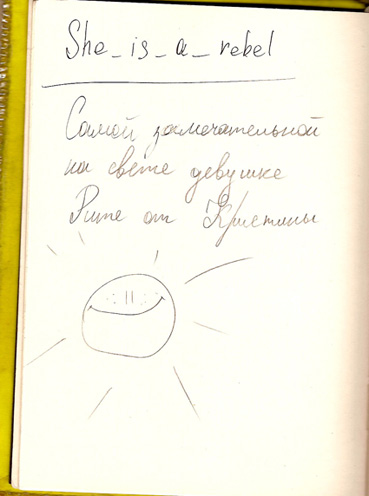 She_is_a_rebel
Самой замечательной
на свете девушке
Рите от Кристины